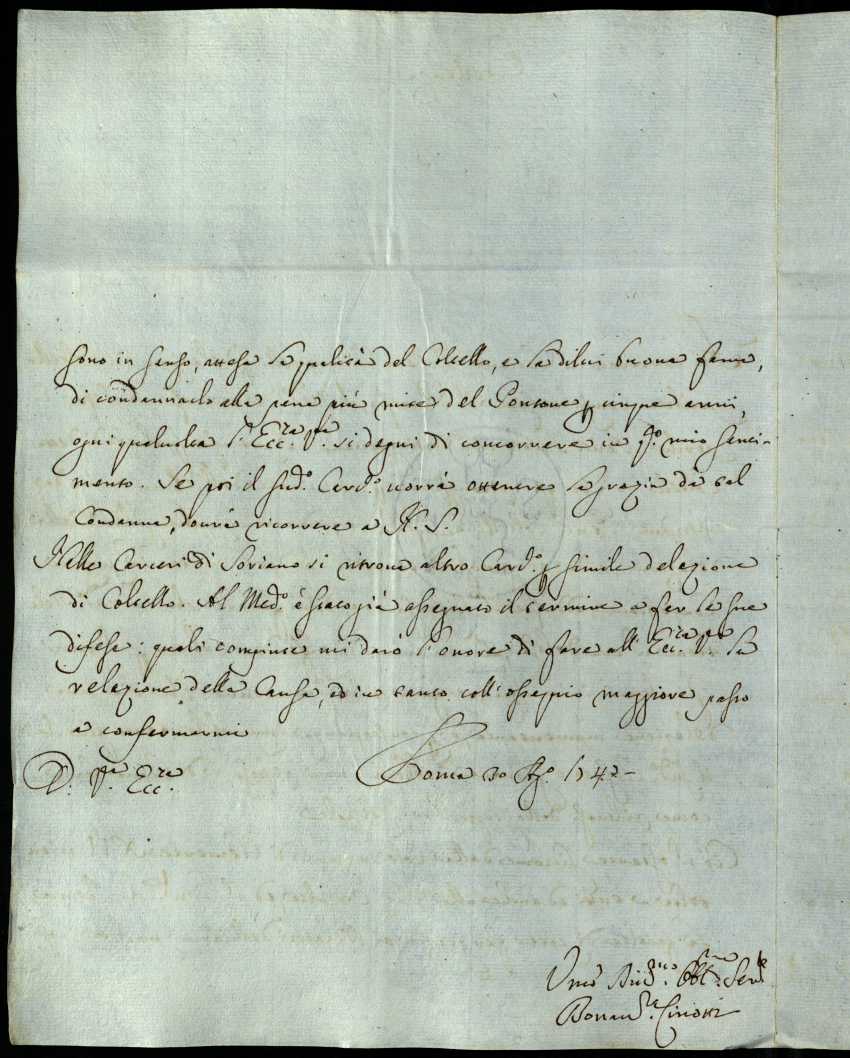 sono in senso, attesa la qualità del Coltello, e la di lui buona fama,
di condannarlo alla pena più mite del Ponsone p cinque anni,
ogni qualvolta l' Ecc.za V.ra si degni di concorrere in q.to mio senti-
mento. Se poi il Sud.o Carc.o vorrà ottenere la grazia da tal
Condanna, dovrà ricorrere a N. S.
Nelle Carceri di Soriano si ritrova altro Carc.o p simile delazione
di Coltello. Al Med.o è stato già assegnato il termine a far le sue
difese: quali compiute mi darò l' onore di fare all' Ecc.za V.ra la
relazione della Causa, ed in tanto coll' ossequio maggiore passo
a confermarmi
D. V.ra Ecc.za
Roma 30 Ag.o 1742-
Umo Obbl.mo Ser.
Bonav.ra